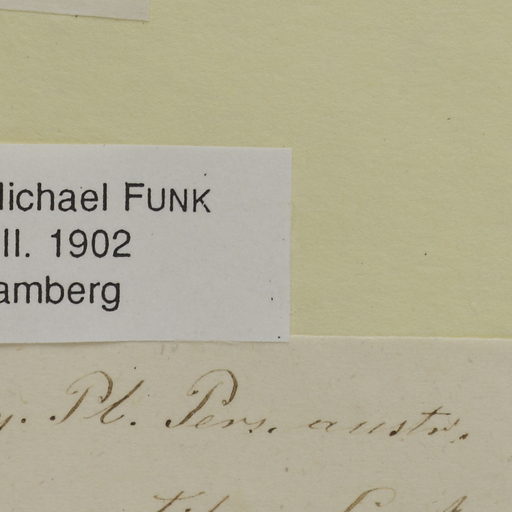 ichael FUNK
II. 1902
amberg
y. Pl. Pers. austr.